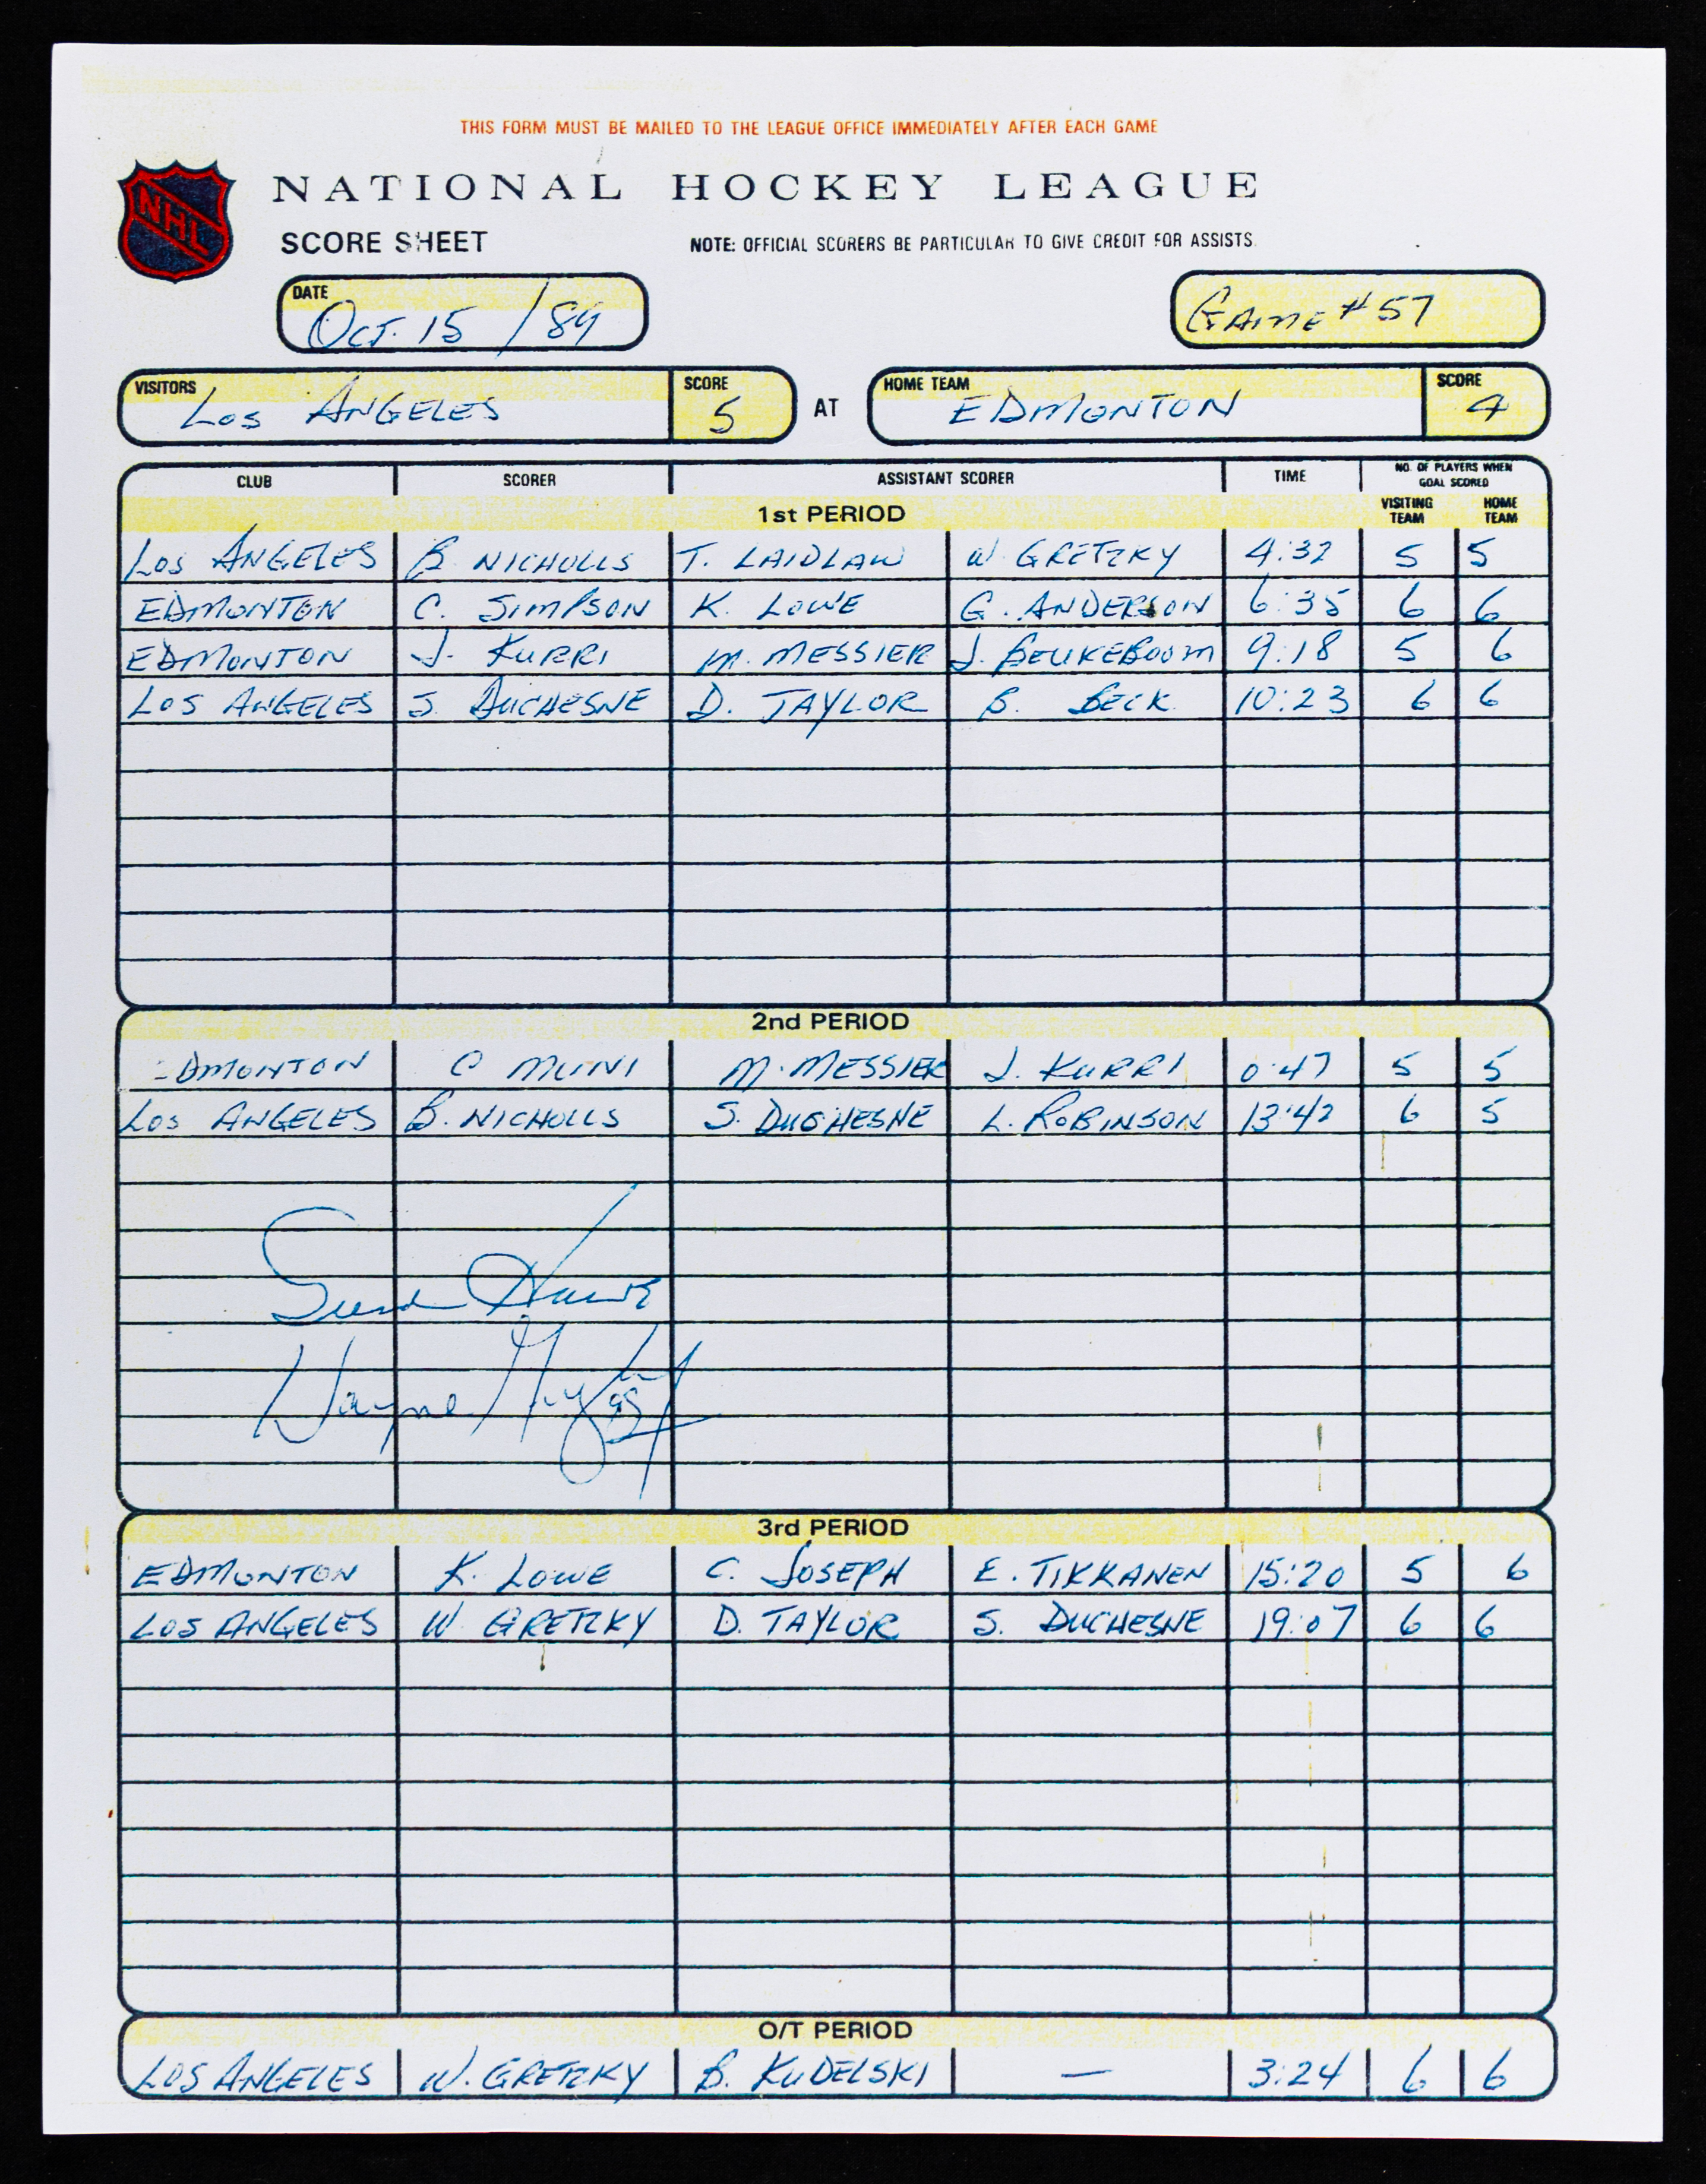 THIS FORM MUST BE MAILED TO THE LEAGUE OFFICE IMMEDIATELY AFTER EACH GAME
NHL
NATIONAL HOCKEY LEAGUE
SCORE SHEET NOTE: OFFICIAL SCORERS BE PARTICULAR TO GIVE CREDIT FOR ASSISTS.
DATE
OCT. 15 /89 GAME #57
VISITORS SCORE HOME TEAM SCORE
LOS ANGELES 5 AT EDMONTON 4
CLUB SCORER ASSISTANT SCORER TIME NO. OF PLAYERS WHEN GOAL SCORED
1st PERIOD VISITING TEAM HOME TEAM
LOS ANGELES B. NICHOLLS T. LAIDLAW W. GRETZKY 4:32 5 5
EDMONTON C. SIMPSON K. LOWE G. ANDERSON 6:35 6 6
EDMONTON J. KURRI M. MESSIER J. BEUKEBOOM 9:18 5 6
LOS ANGELES S. DUCHESNE D. TAYLOR B. BECK 10:23 6 6
2nd PERIOD
EDMONTON C MUNI M. MESSIER J. KURRI 0:47 5 5
LOS ANGELES B. NICHOLLS S. DUCHESNE L. ROBINSON 13:42 6 5
Wayne Gretzky 99
3rd PERIOD
EDMONTON K. LOWE C. JOSEPH E. TIKKANEN 15:20 5 6
LOS ANGELES W. GRETZKY D. TAYLOR S. DUCHESNE 19:07 6 6
O/T PERIOD
LOS ANGELES W. GRETZKY B. KUDELSKI — 3:24 6 6